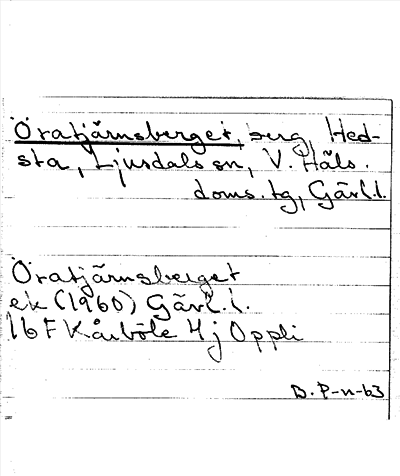 Öratjärnsberget, berg, Hed-
sta, Ljusdals sn, V. Häls.
doms. tg, Gävl.l.
Öratjärnsberget
ek (1960) Gävl.l.
16 F Kårböle 4 j Oppli
B. P-n-63